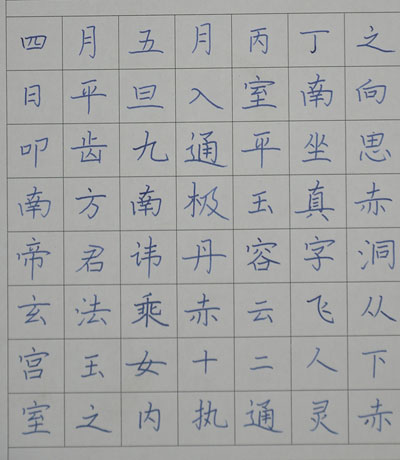 四月五月丙丁之
日平旦入室南向
叩齿九通平坐思
南方南极玉真赤
帝君讳丹容字洞
玄法乘赤云飞从
宫玉女十二人下
室之内执通灵赤